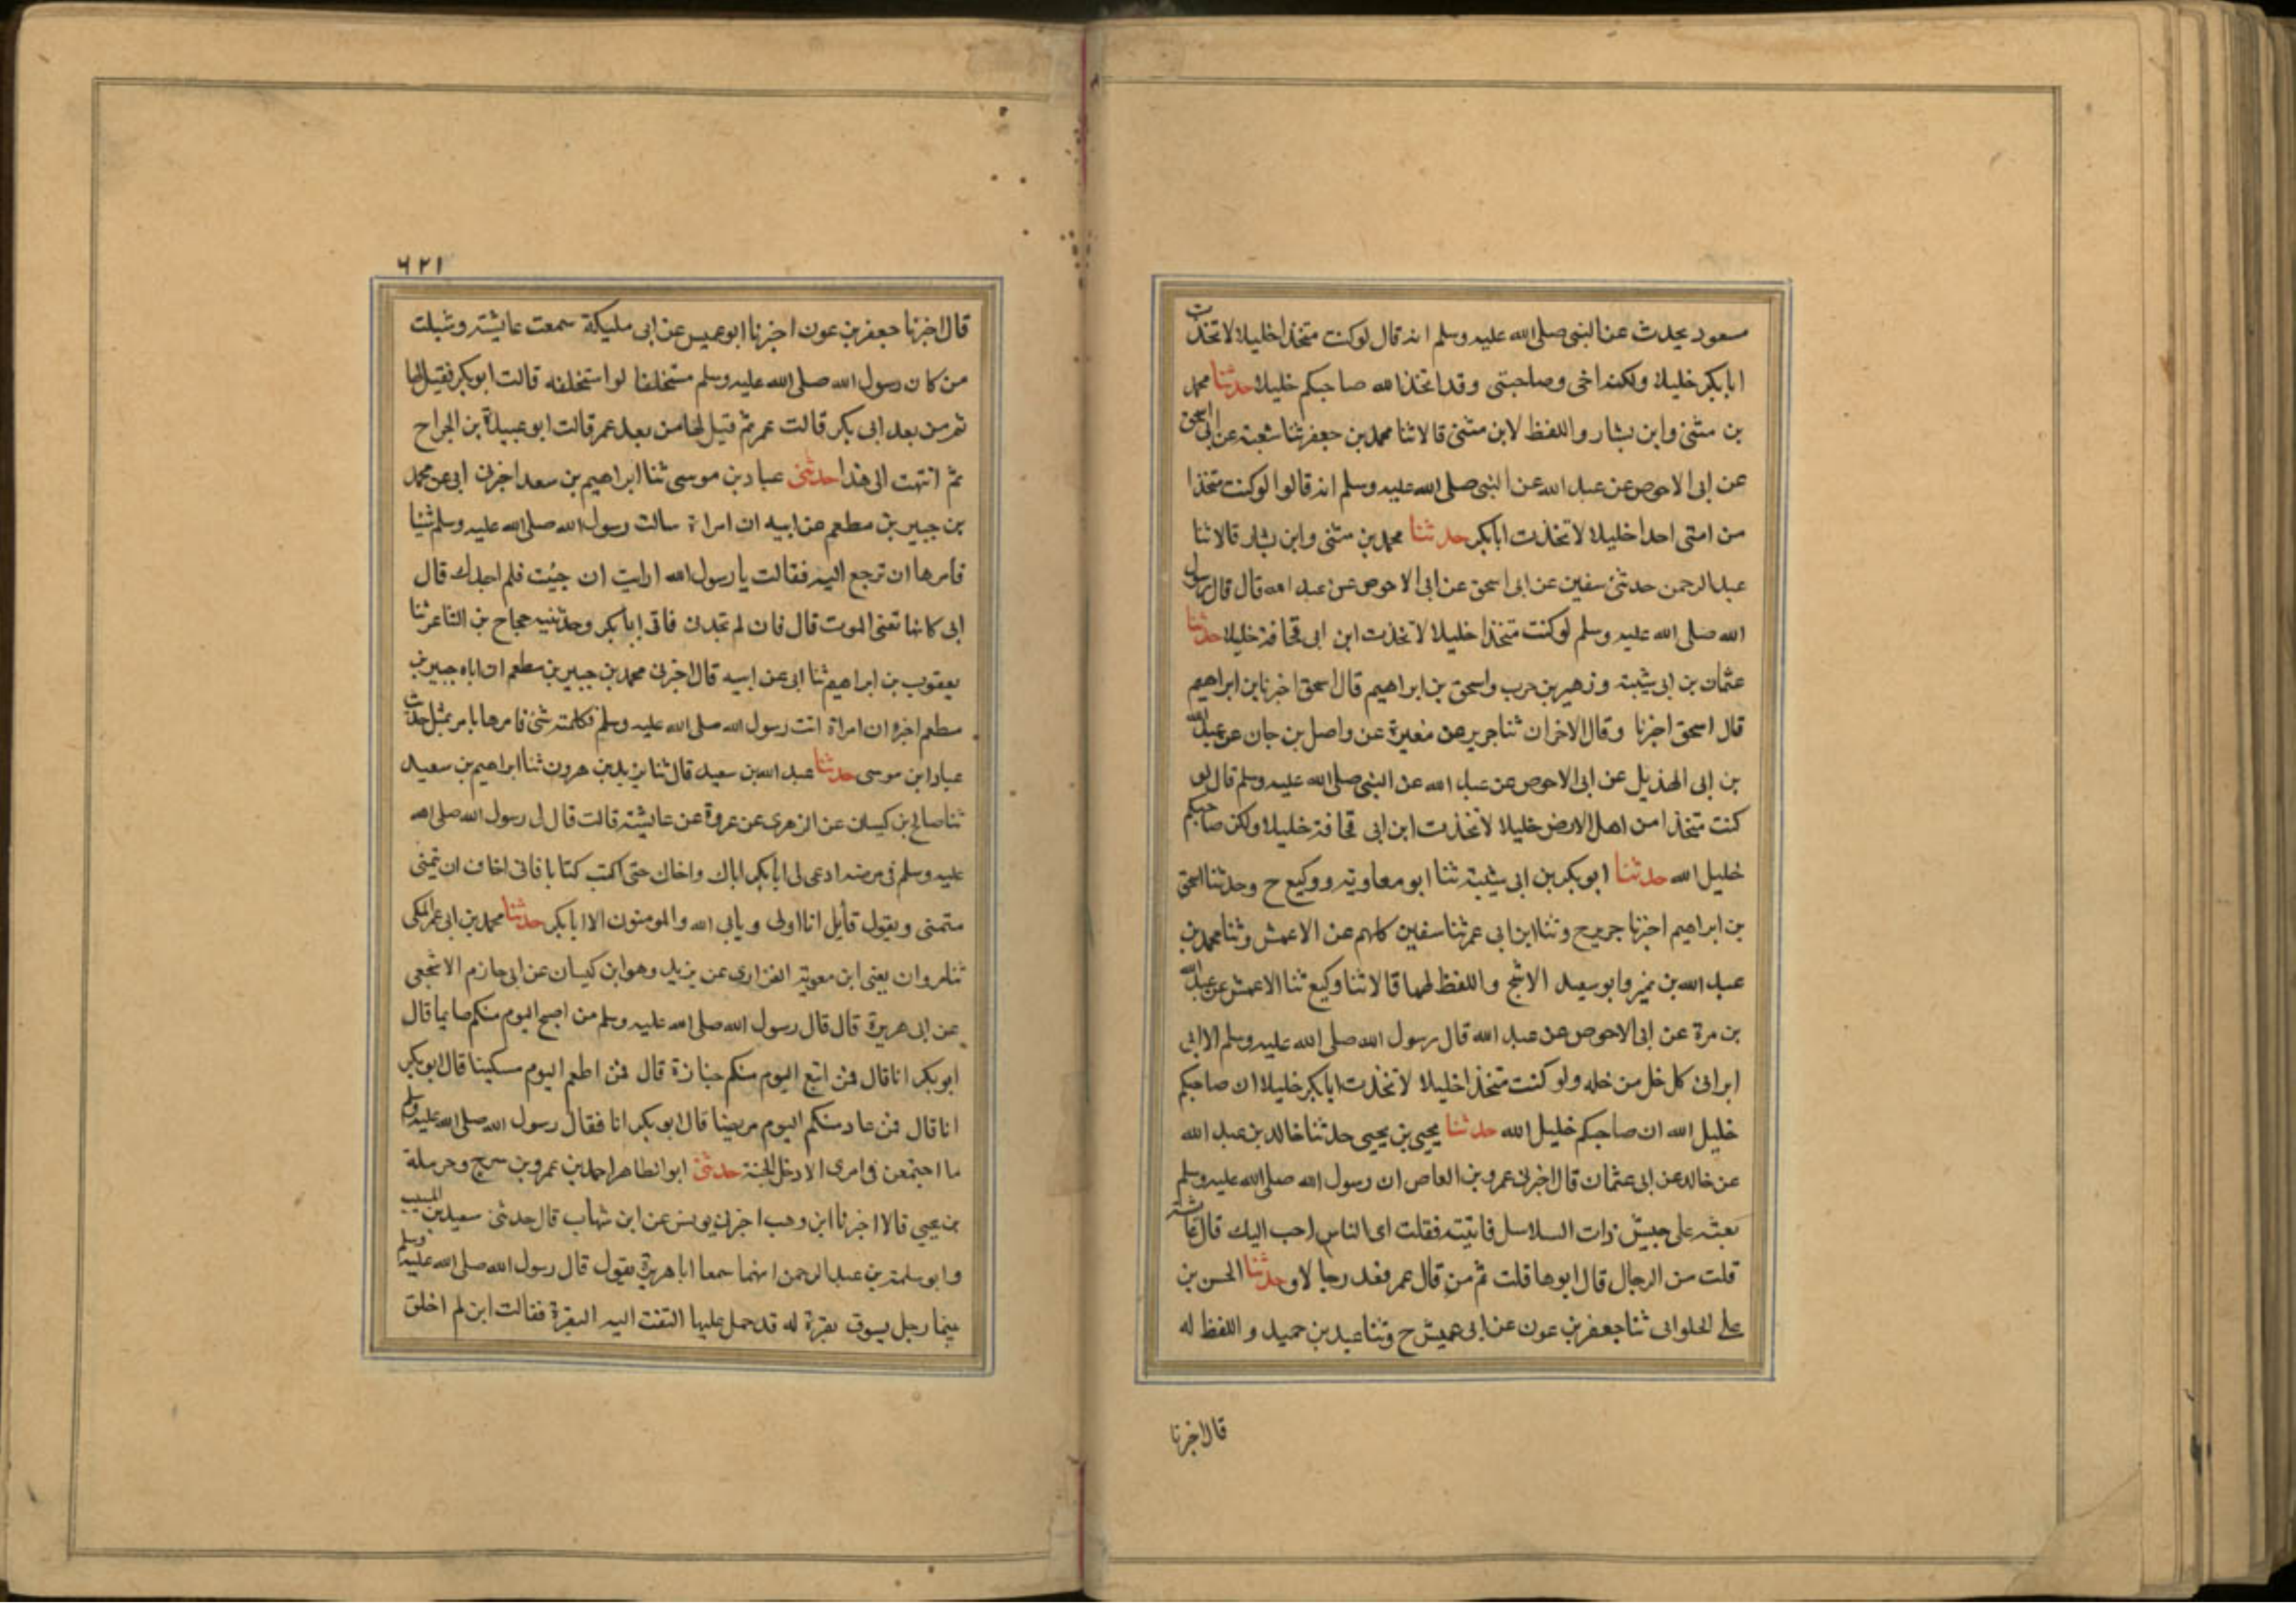 مسعود يحدث عن النبى صلى الله عليه وسلم انه قال لوكنت متخذا خليلا لاتخذت
ابابكر خليلا ولكنه اخى وصاحبتى وقد اتخذ الله صاحبكم خليلا حدثنا محمد
بن مثنى وابن بشار واللفظ لابن مثنى قالا ثنا محمد بن جعفر ثنا شعبة عن ابى اسحق
عن ابى الاحوص عن عبد الله عن النبى صلى الله عليه وسلم انه قالوا لوكنت متخذا
من امتى احدا خليلا لاتخذت ابابكر حدثنا محمد بن مثنى وابن بشار قالا ثنا
عبد الرحمن حدثنى سفين عن ابى اسحق عن ابى الاحوص عن عبد الله قال قال رسول
الله صلى الله عليه وسلم لوكنت متخذا خليلا لاتخذت ابن ابى قحافة خليلا حدثنا
عثمان بن ابى شيبة وزهير بن حرب واسحق بن ابراهيم قال اسحق اخبرنا بن ابراهيم
قال اسحق اخبرنا وقال الاخران ثنا جرير عن مغيرة عن واصل بن حان عن عبد الله
بن ابى الهذيل عن ابى الاحوص عن عبد الله عن النبى صلى الله عليه وسلم قال لو
كنت متخذا من اهل الارض خليلا لاتخذت ابن ابى قحافة خليلا ولكن صاحبكم
خليل الله حدثنا ابو بكر بن ابى شيبة ثنا ابو معاوية ووكيع ح وحدثنا اسحق
بن ابراهيم اخبرنا جرير ح وثنا ابن ابى عمر ثنا سفين كلهم عن الاعمش وثنا محمد بن
عبد الله بن نمير وابو سعيد الاشج واللفظ لهما قالا ثنا وكيع ثنا الاعمش عن عبد الله
بن مرة عن ابى الاحوص عن عبد الله قال رسول الله صلى الله عليه وسلم الا انى
ابرا الى كل خل من خله ولو كنت متخذا خليلا لاتخذت ابابكر خليلا ان صاحبكم
خليل الله ان صاحبكم خليل الله حدثنا يحيى بن يحيى حدثنا خالد بن عبد الله
عن خالد عن ابى عثمان قال اخبرنى عمرو بن العاص ان رسول الله صلى الله عليه وسلم
بعثه على جيش ذات السلاسل فاتيته فقلت اى الناس احب اليك قال عائشة
قلت من الرجال قال ابوها قلت ثم من قال عمر فعد رجالا وحدثنا الحسن بن
على الحلوانى ثنا جعفر بن عون عن ابى عميش ح وثنا عبد بن حميد واللفظ له
قال اخبرنا
٦٢١
قال اخبرنا جعفر بن عون اخبرنا ابو عميس عن ابى مليكة سمعت عايشة وسئلت
من كان رسول الله صلى الله عليه وسلم مستخلفا لو استخلفه قالت ابو بكر فقيل لها
ثم من بعد ابى بكر قالت عمر ثم قيل لها من بعد عمر قالت ابو عبيدة بن الجراح
ثم انتهت الى هذا حدثنى عباد بن موسى ثنا ابراهيم بن سعد اخبرنى ابى عن محمد
بن جبير بن مطعم عن ابيه ان امراة سالت رسول الله صلى الله عليه وسلم شيئا
فامرها ان ترجع اليه فقالت يا رسول الله ارايت ان جيئت فلم اجدك قال
ابى كانها تعنى الموت قال فان لم تجدنى فاتى ابابكر وحدثنيه حجاج بن الشاعر ثنا
يعقوب بن ابراهيم ثنا ابى عن ابيه قال اخبرنى محمد بن جبير بن مطعم ان اباه جبير بن
مطعم اخبره ان امراة اتت رسول الله صلى الله عليه وسلم فكلمته شئ فامرها بامر بمثل حديث
عباد ابن موسى حدثنا عبد الله بن سعيد قال ثنا يزيد بن هرون ثنا ابراهيم بن سعيد
ثنا صالح بن كيسان عن الزهرى عن عروة عن عايشة قالت قال لى رسول الله صلى الله
عليه وسلم فى مرضه ادعى لى ابابكر اباك واخاك حتى اكتب كتابا فانى اخاف ان يتمنى
متمنى ويقول قايل انا اولى ويابى الله والمومنون الا ابابكر حدثنا محمد بن ابى عمر المكى
ثنا مروان يعنى ابن معوية الفزارى عن يزيد وهو ابن كيسان عن ابى حازم الاشجعى
عن ابى هريرة قال قال رسول الله صلى الله عليه وسلم من اصبح اليوم منكم صايما قال
ابو بكر انا قال فمن اتبع اليوم منكم جنازة قال فمن اطعم اليوم مسكينا قال ابو بكر
انا قال فمن عاد منكم اليوم مريضا قال ابو بكر انا فقال رسول الله صلى الله عليه وسلم
ما اجتمعن فى امرى الا دخل الجنة حدثنى ابو الطاهر احمد بن عمرو بن سرح وحرملة
بن يحيى قالا اخبرنا ابن وهب اخبرنى يونس عن ابن شهاب قال حدثنى سعيد بن المسيب
وابو سلمة بن عبد الرحمن انهما سمعا ابا هريرة يقول قال رسول الله صلى الله عليه وسلم
بينما رجل يسوق بقرة له قد حمل عليها التفتت اليه البقرة فقالت ابن لم اخلق